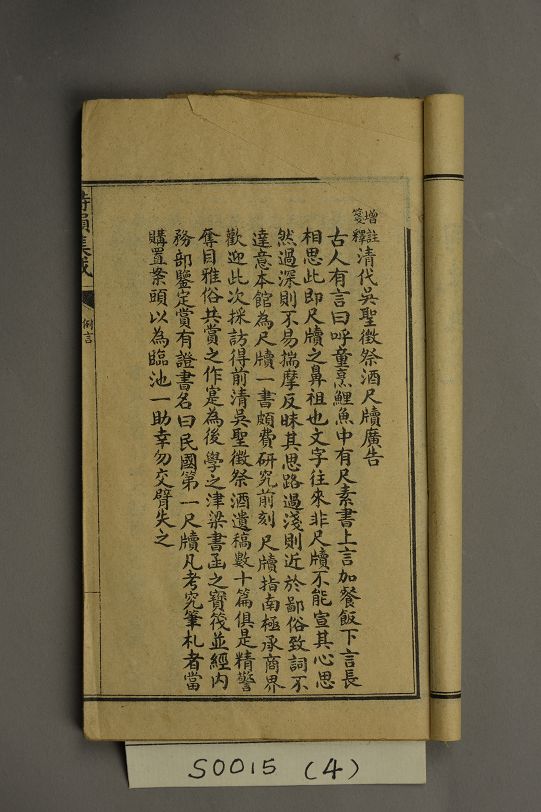 增註
箋釋
清代吳聖徵祭酒尺牘廣告
古人有言曰呼童烹鯉魚中有尺素書上言加餐飯下言長
相思此即尺牘之鼻祖也文字往來非尺牘不能宣其心思
然過深則不易揣摩反昧其思路過淺則近於鄙俗致詞不
達意本館為尺牘一書頗費研究前刻尺牘指南極承商界
歡迎此次採訪得前清吳聖徵祭酒遺稿數十篇俱是精警
奪目雅俗共賞之作寔為後學之津梁書函之寶筏並經內
務部鑒定賞有證書名曰民國第一尺牘凡考究筆札者當
購置案頭以為臨池一助幸勿交臂失之
詩韻集成
例言
S0015 (4)